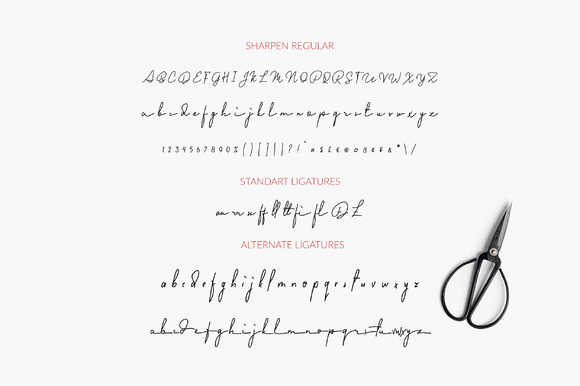 SHARPEN REGULAR
ABCDEFGHIJKLMNOPQRSTUVWXYZ
abcdefghijklmnopqrstuvwxyz
1234567890%()[]||?!
STANDART LIGATURES
ff ll tt fi fl
ALTERNATE LIGATURES
abcdefghijklmnopqrstuvwxyz
abcdefghijklmnopqrstuvwxyz